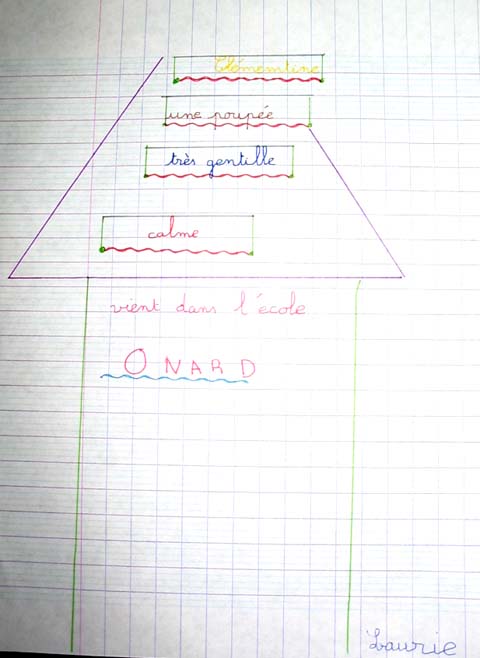 Clémentine
une poupée
très gentille
calme
vient dans l'école
ONARD
Laurie